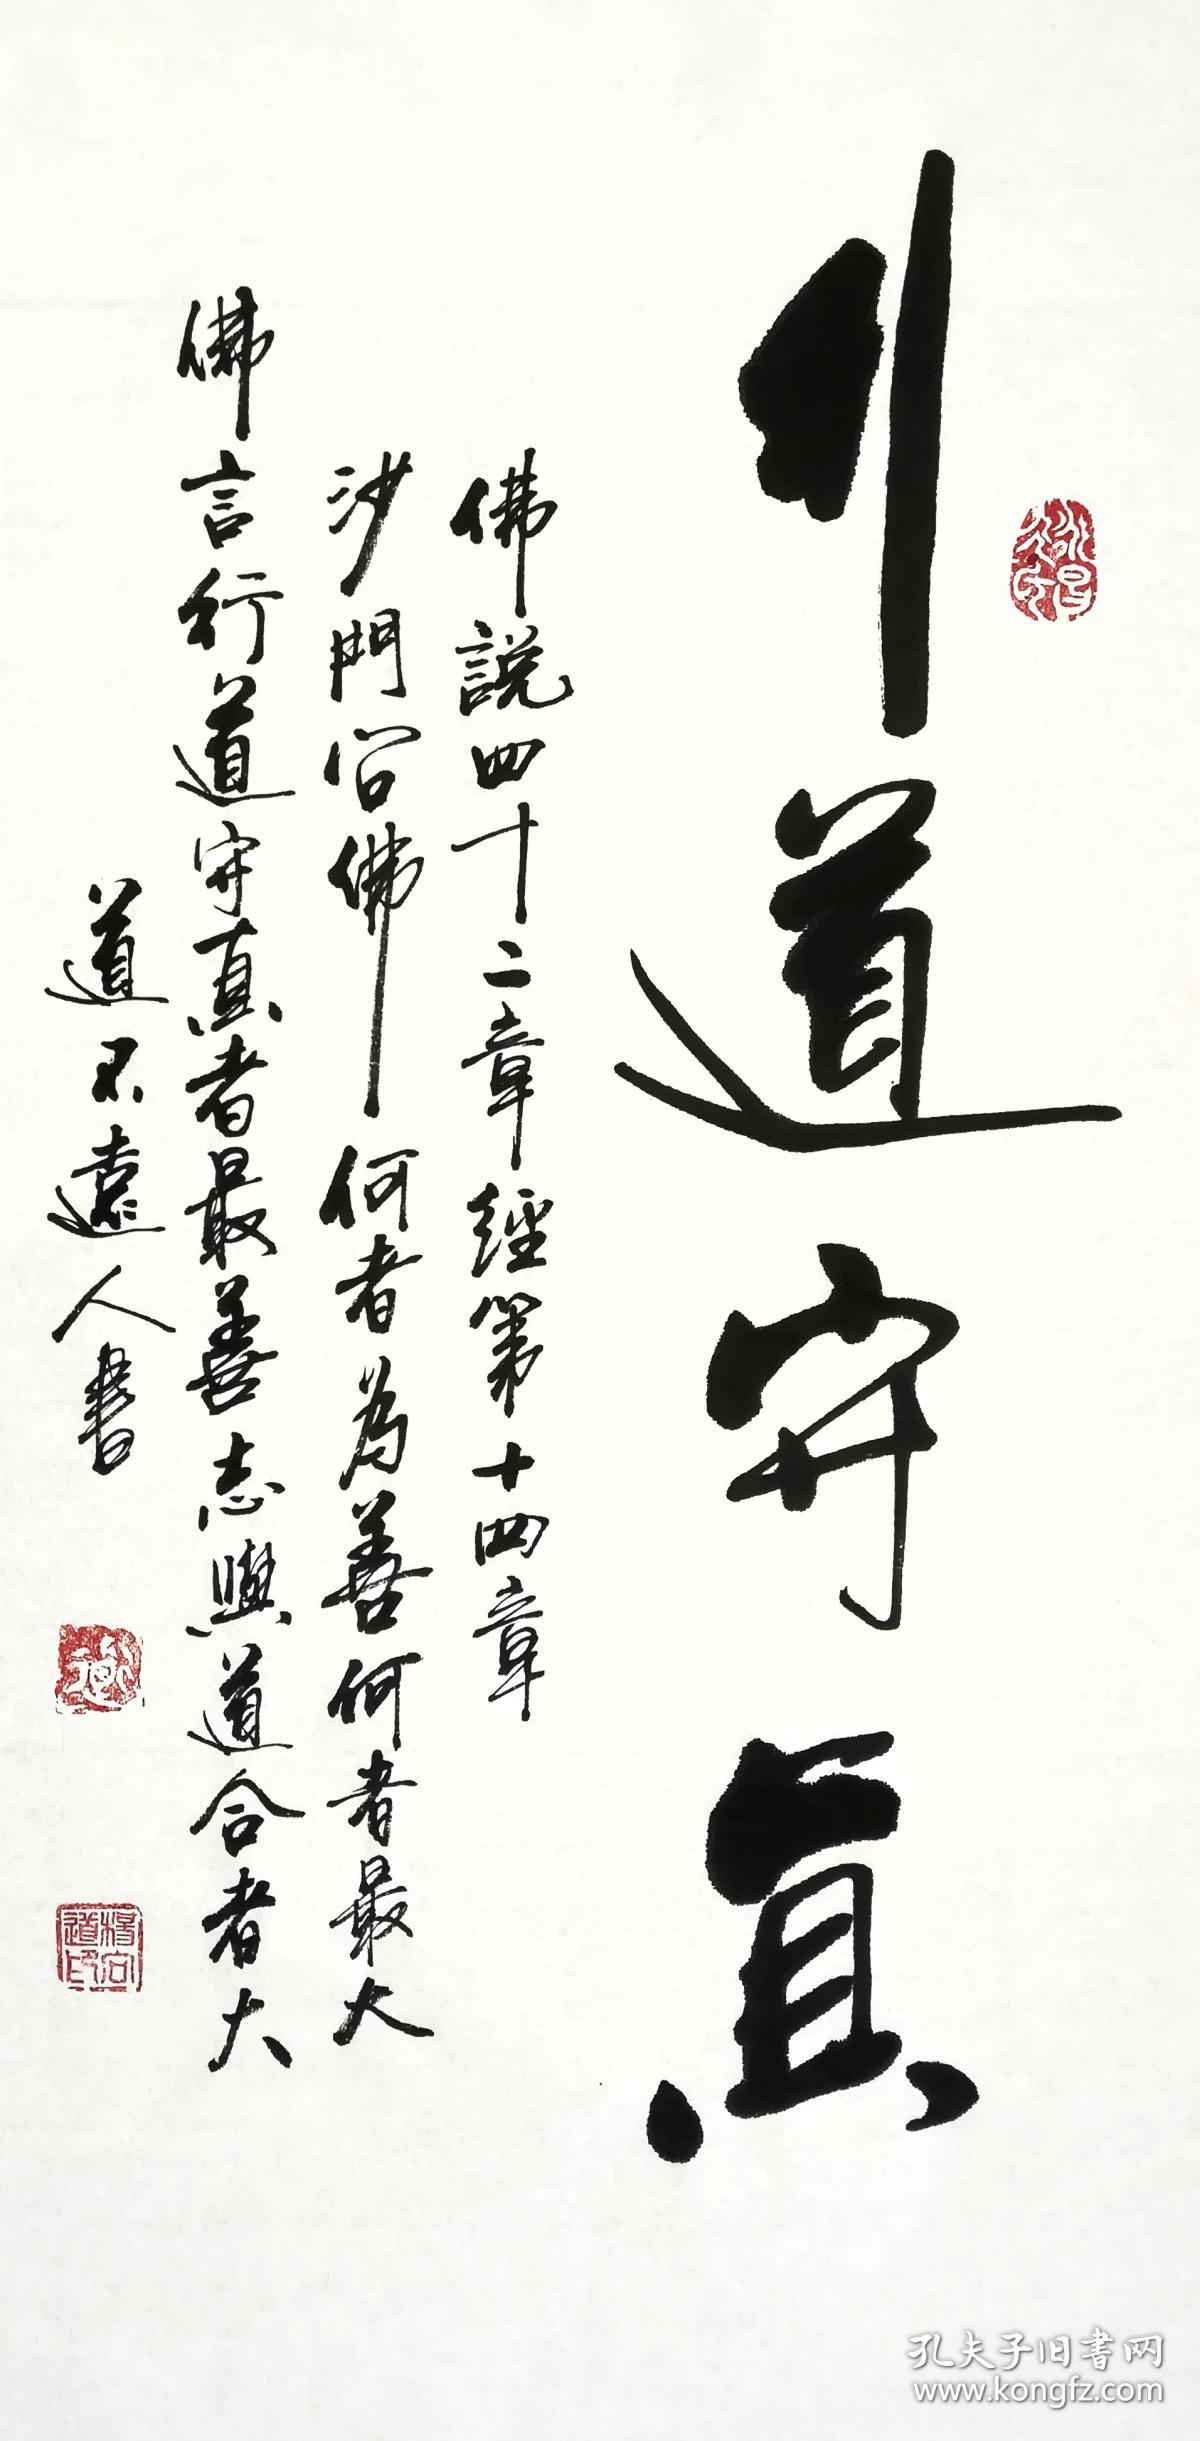 行道守真
佛説四十二章經第十四章
沙門問佛何者為善何者最大
佛言行道守真者最善志與道合者大
道不遠人書
楊向道印
孔夫子旧书网
www.kongfz.com